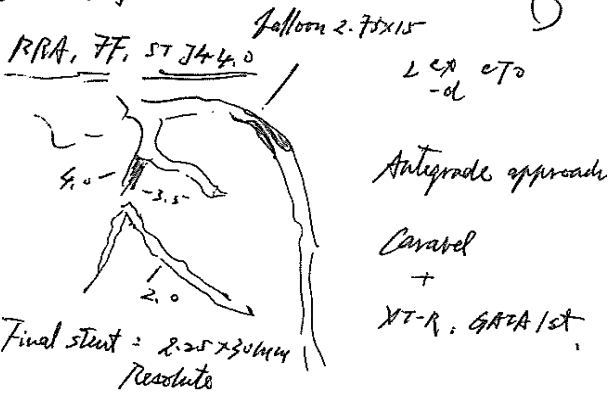 Balloon 2.75x15
RRA, 7F, ST JL4 4.0
LCX CTO
-d
4.0
-3.5-
Antegrade approach
Caravel
+
XT-R, GAIA 1st
2.0
Final stent = 2.25x30mm
Resolute